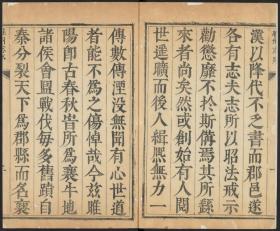 漢以降代不之書而郡邑遂
各有志夫志所以昭法戒示
勸懲靡不於斯備焉其所繇
來者尚矣然或創始有人閱
世遐曠而後人緝熙無力一
傳數傳湮沒無聞有心世道
者能不為之傷悼哉今茲雎
陽卽古春秋旹為襄牛地
諸侯會盟戰伐每多舊蹟自
秦分裂天下為郡縣而名襄